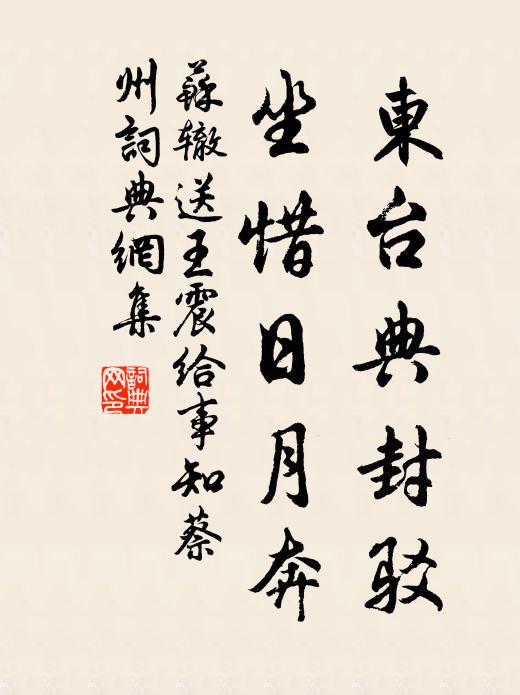 東台典封駁
坐惜日月奔
蘇辙送王震给事知蔡
州詞典網集
詞典网印